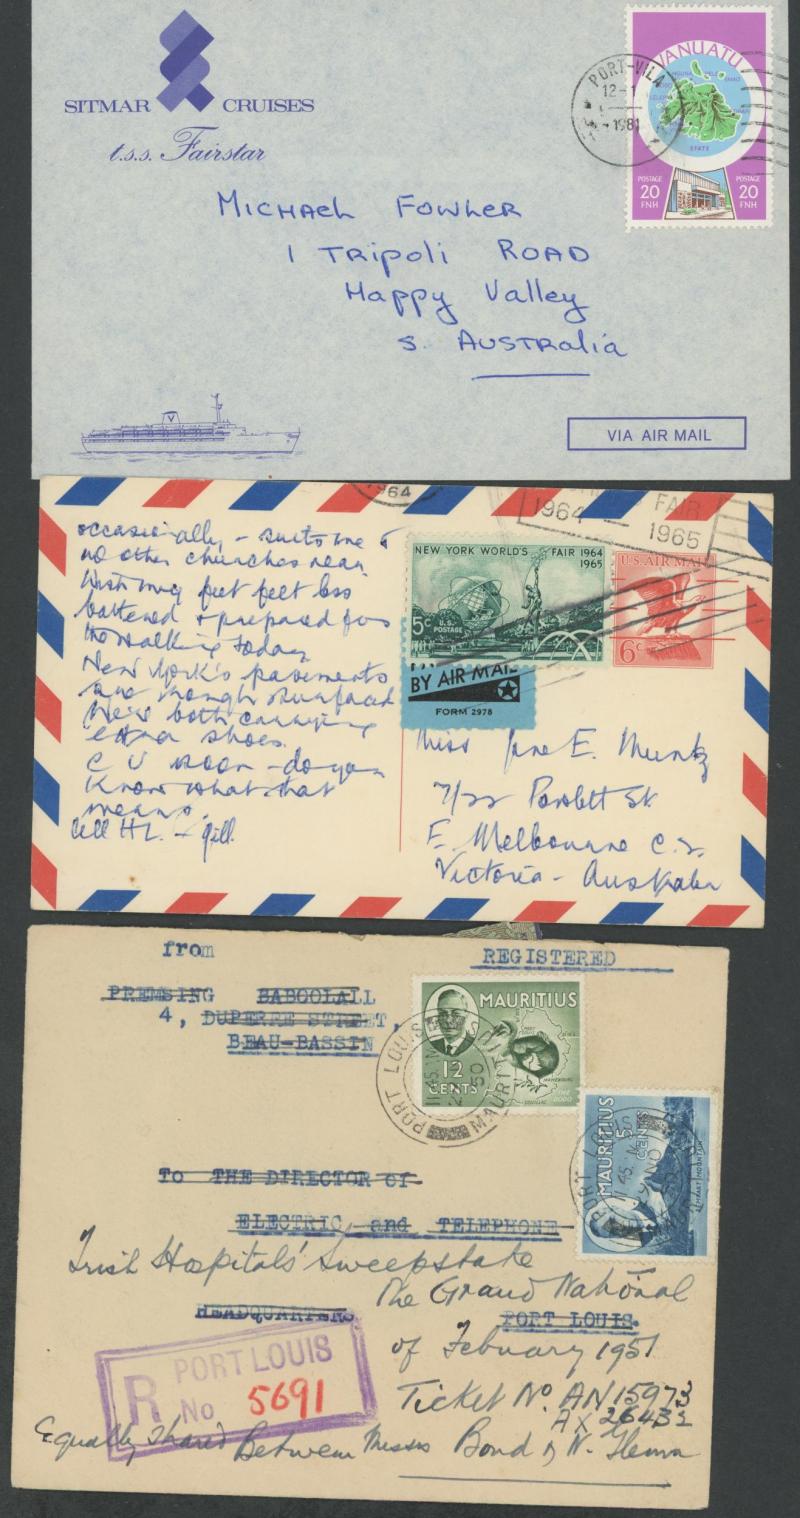 SITMAR CRUISES
t.s.s. Fairstar
PORT-VILA
12-1
1981
VANUATU
STATE
POSTAGE 20 FNH
POSTAGE 20 FNH
MICHAEL FOWLER
1 TRIPOLI ROAD
HAPPY VALLEY
S. AUSTRALIA
VIA AIR MAIL
1964
FAIR
1964 — 1965
occasionally, – suits me &
no other churches near.
Wish my feet felt less
battered & prepared for
the walking today
New York's pavements
are rough surfaced
We're both carrying
extra shoes.
C U soon – do you
know what that
means.
Gill.
NEW YORK WORLD'S FAIR 1964
1965
5c U.S. POSTAGE
U.S. AIR MAIL
6c
BY AIR MAIL
FORM 2978
Miss Jane E. Muntz
7/22 Powlett St
E. Melbourne C.2.
Victoria – Australia
from REGISTERED
PREMSING BABOOLALL
4, DUPERRE STREET,
BEAU-BASSIN
MAURITIUS
12 CENTS
THE DODO
PORT LOUIS
MAURITIUS
MAURITIUS
5 CENTS
To THE DIRECTOR of
ELECTRIC, and TELEPHONE
Irish Hospitals' Sweepstake
The Grand National
HEADQUARTERS PORT LOUIS.
of February 1951
R PORT LOUIS
No 5691
Ticket No. AN 15973
AX 26432
Equally Shared Between Messrs Bond & W.